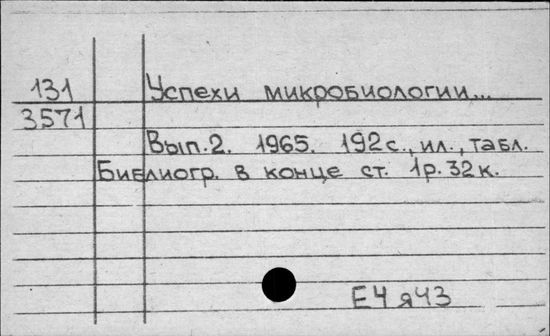 131 Успехи микробиологии...
3571
Вып.2. 1965. 192с., ил., табл.
Библиогр. в конце ст. 1р. 32к.
Е4я43